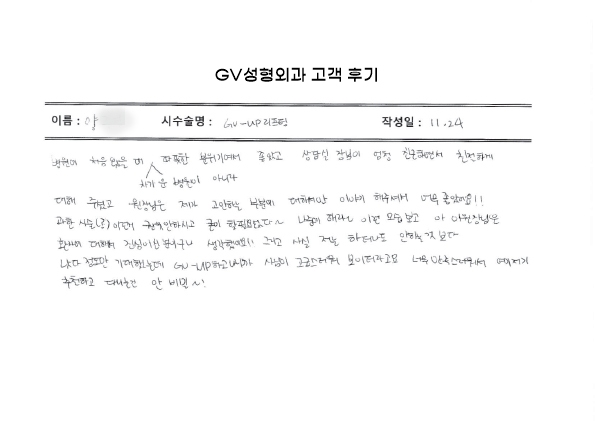 GV성형외과 고객 후기
이름 : 양 시수술명 : GV-UP 리프팅 작성일 : 11.24
병원에 처음 왔을 때 따뜻한 분위기여서 좋았고 상담실 장님이 엄청 친근하면서 친절하게
차가운 병원이 아니라
대해 주셨고 원장님은 제가 고민하는 부분에 대해서만 이야기 해주셔서 너무 좋았어요!!
과한 시술(?) 이런거 권유 안하시고 굳이 할필요없다~ 나중에 해라~ 이런 모습 보고 아 이원장님은
환자에 대해서 진심이신분이구나 생각했어요! 그리고 사실 저는 하더라도 안하는 것 보다
낫다 정도만 기대했는데 GV-UP하고나니까 사람이 고급스러워 보이더라고요 너무 만족스러워서 여기저기
추천하고 다니는건 안 비밀~!